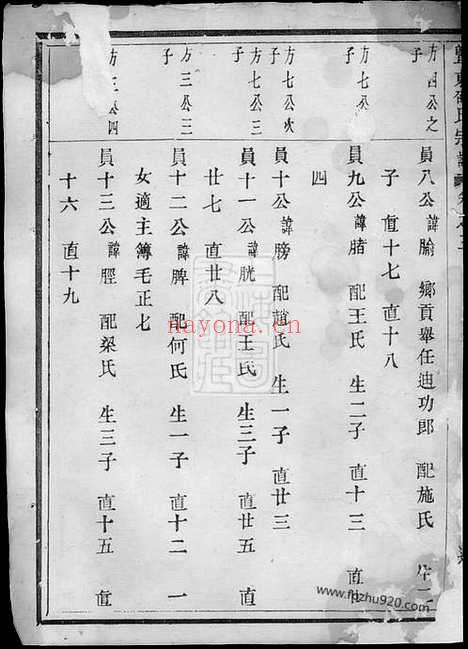 暨東
氏宗譜
方四公之子
員八公諱腧 鄉貢舉任迪功郎 配施氏 生二
子 直十七 直十八
方七公
子
員九公諱脽 配王氏 生二子 直十三 直十
四
方七公次子
員十公諱膀 配趙氏 生一子 直廿三
方七公三子
員十一公諱胱 配王氏 生三子 直廿五 直
廿七 直廿八
方三公三子
員十二公諱脾 配何氏 生一子 直十二 一
女適主簿毛正七
方三公四子
員十三公諱脛 配梁氏 生三子 直十五 直
十六 直十九
nayona.cn
www.fpzhu920.com